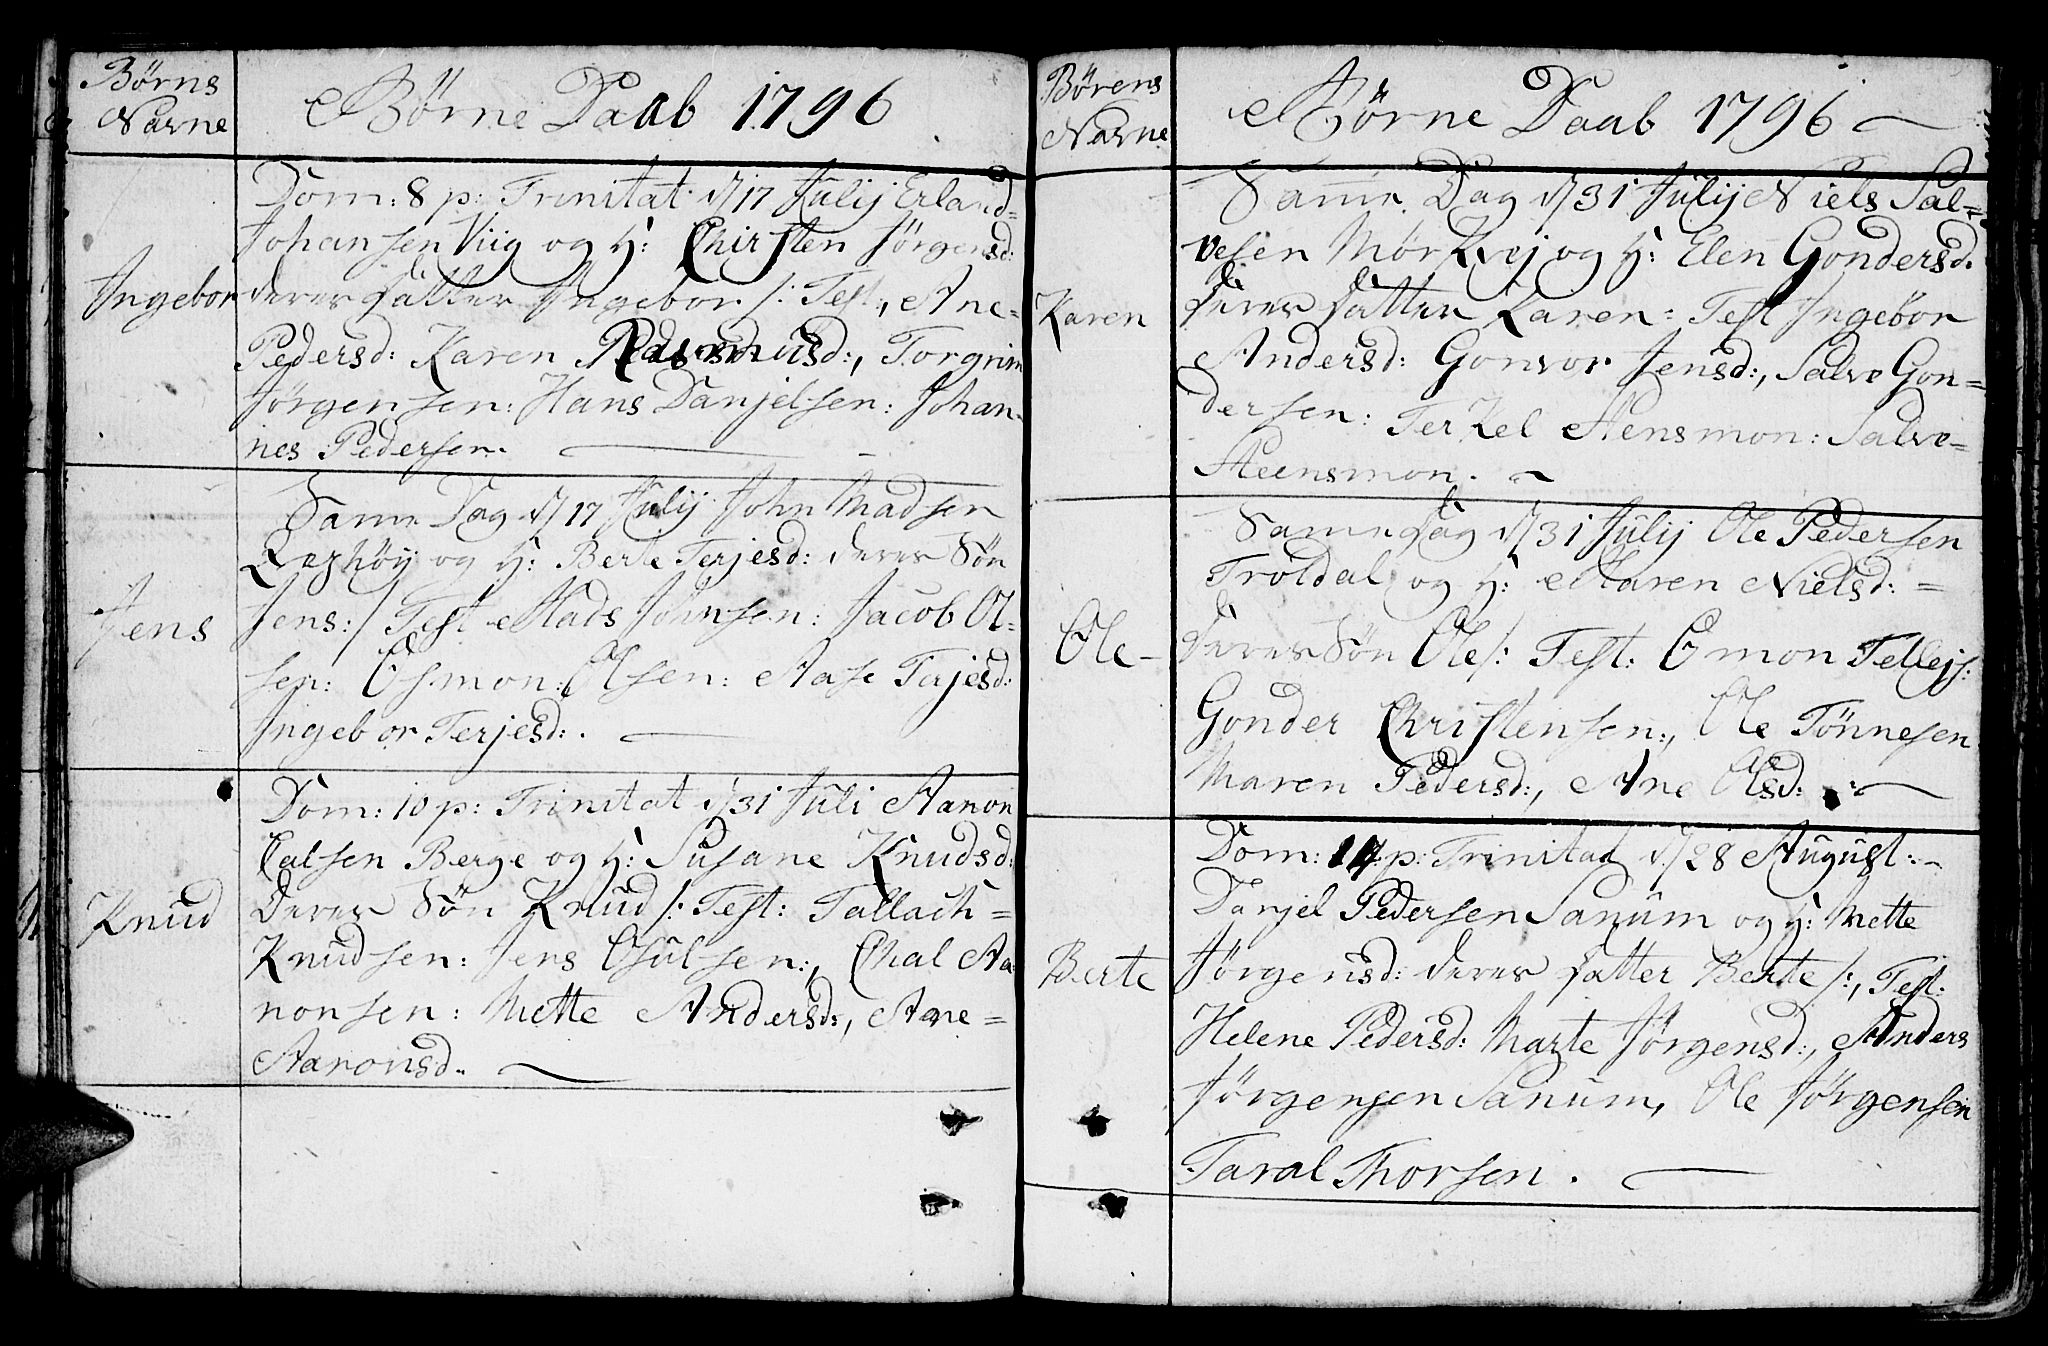 Børns
Navne
Børne Daab 1796
Dom: 8 p: Trinitat: d/17 Julij Erland=
Johansen Viig og H: Chirsten Jørgensd:
Ingebor
deres datter Ingebor /: Test:, Ane=
Pedersd: Karen Rasmusd:, Torgrim
Jørgensen: Hans Danjelsen: Johan-
nes Pedersen.
Samme Dag d/17 Julij John Madsen
og H: Berte Terjesd: deres Søn
Jens
Jens: / Test Mads Johnsen: Jacob Ol-
sen: Osmon: Olsen: Aase Terjesd:
Ingebor Terjesd:.
Dom: 10 p: Trinitat d/31 Juli Aanon
Calsen Berge og H: Susane Knudsd:
Knud
deres Søn Knud /: Test: Tallach=
Knudsen: Jens Osulsen:, Chal Aa-
nonsen: Mette Andersd:, Ane=
Aanonsd.
Børens
Navne
Børne Daab 1796
Samme Dag d/31 Julij Niels Sal=
vesen Mørkvej og H: Elen Gondersd.
Karen
deres datter Karen: Test Ingebor
Andersd: Gonvor Jensd:, Salve Gon=
dersen: Terkel Stensmon: Salve-
Steensmon.
Samme dag d/31 Julij Ole Pedersen
Troldal og H: Maren Nielsd: =
Ole-
deres Søn Ole /: Test: Omon Tellejs:
Gonder Christensen:, Ole Tønnesen
Maren Pedersd:, Ane Olsd:
Dom: 14 p: Trinitat d/28 August:
Danjel Pedersen Sanum og H: Mette
Berte
Jørgensd: deres datter Berte /:, Test:
Helene Pedersd: Marte Jørgensd:, Anders
Jørgensen Sanum, Ole Jørgensen
Taral Thorsen.